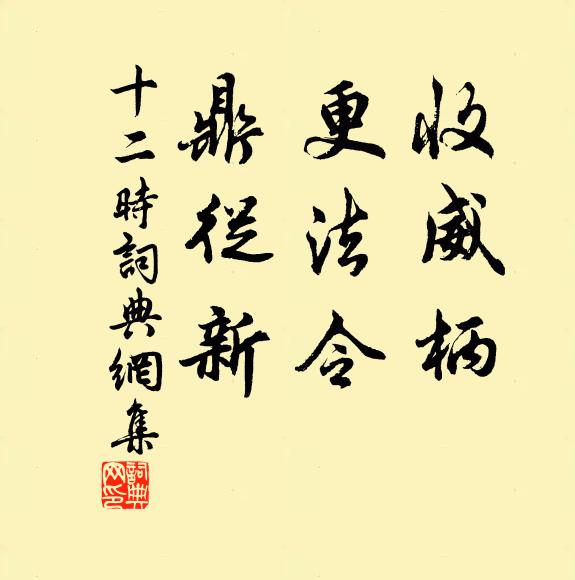 收威柄
更法令
鼎從新
十二時詞典網集
詞典网印